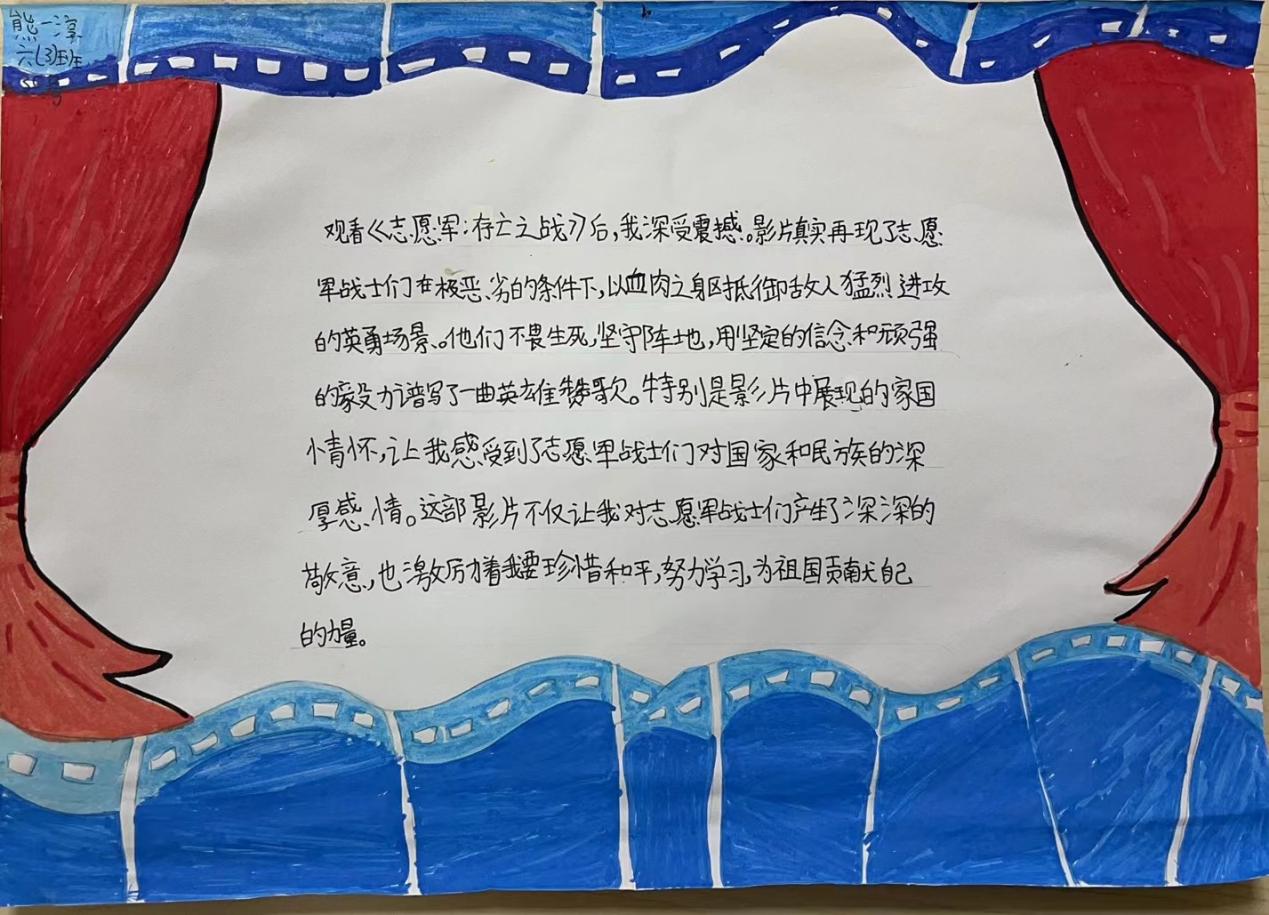 熊一淳
六(3)班
观看《志愿军：存亡之战》后，我深受震撼。影片真实再现了志愿
军战士们在极恶劣的条件下，以血肉之身区抵御敌人猛烈进攻
的英勇场景。他们不畏生死，坚守阵地，用坚定的信念和顽强
的毅力谱写了一曲英雄赞歌。特别是影片中展现的家国
情怀，让我感受到了志愿军战士们对国家和民族的深
厚感情。这部影片不仅让我对志愿军战士们产生了深深的
敬意，也激励着我要珍惜和平，努力学习，为祖国贡献自己
的力量。